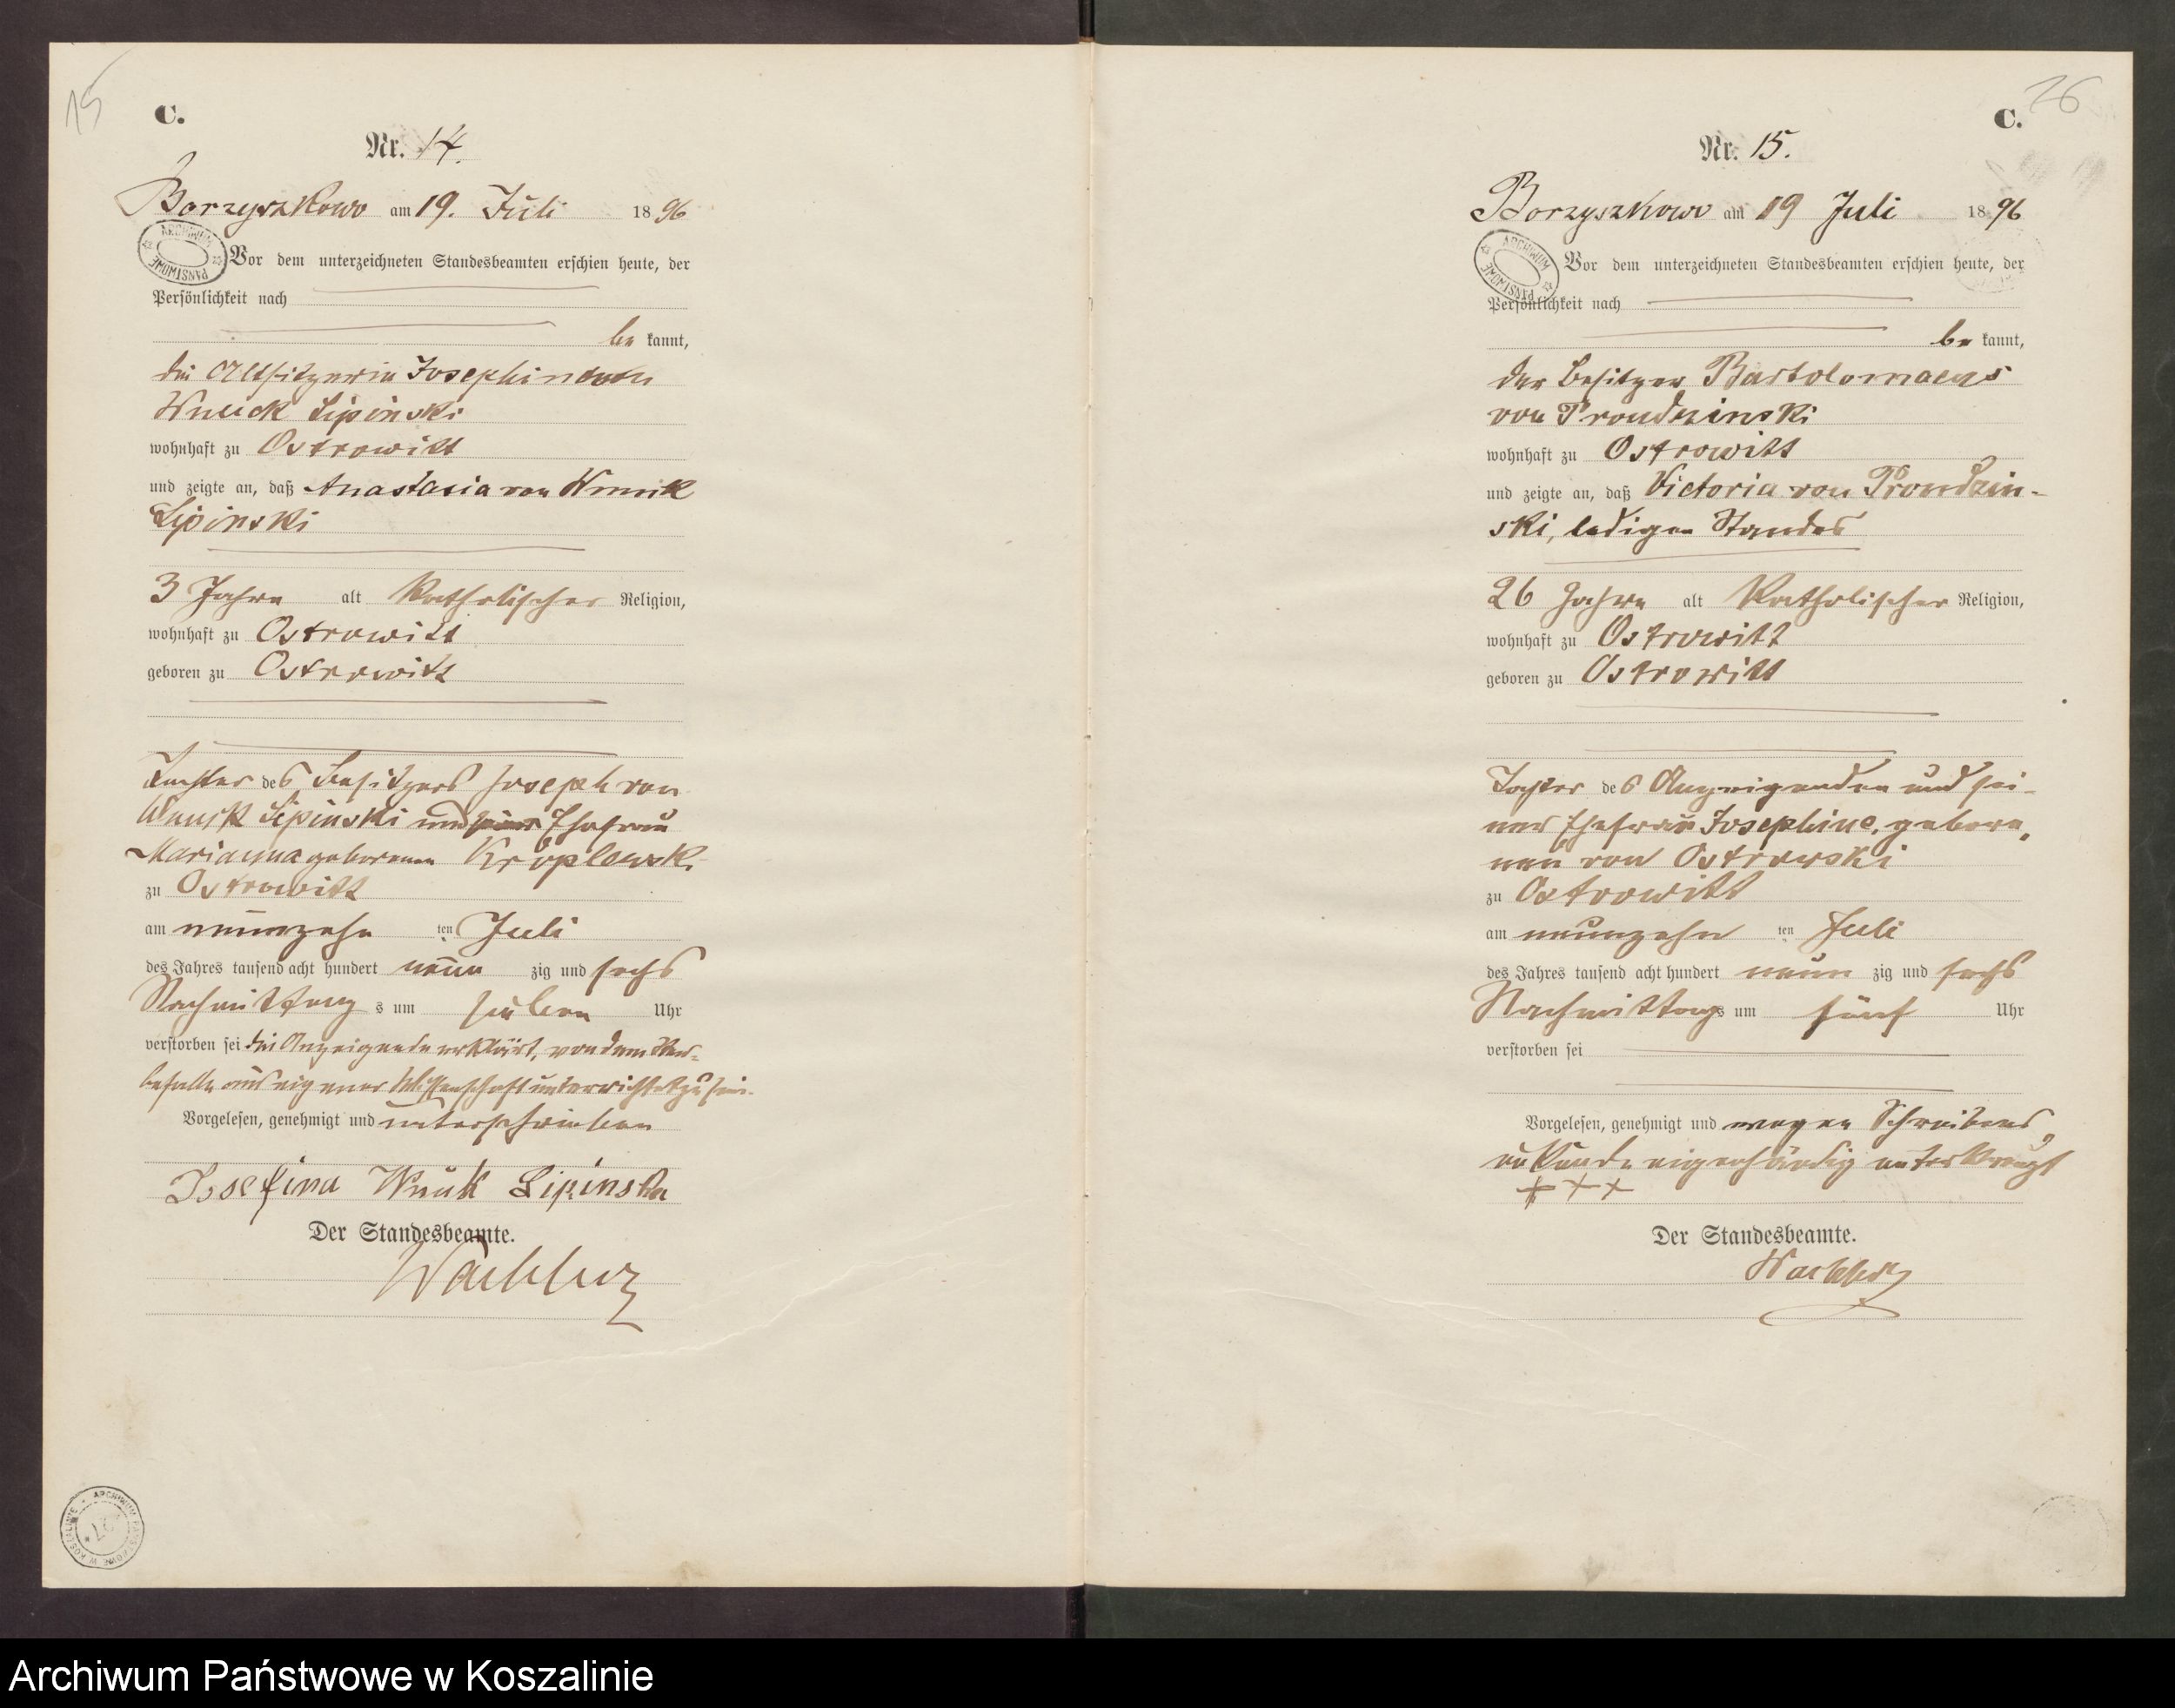 15
C.
Nr. 14.
Borzyszkowo am 19. Juli 1896
ARCHIWUM PAŃSTWOWE
Vor dem unterzeichneten Standesbeamten erschien heute, der
Persönlichkeit nach
be kannt,
die Altsitzerin Josephine von
Wnuck Lipinski
wohnhaft zu Ostrowitt
und zeigte an, daß Anastasia von Wnuk
Lipinski
3 Jahre alt katholischer Religion,
wohnhaft zu Ostrowitt
geboren zu Ostrowitt
Tochter des Besitzers Joseph von
Wnuck Lipinski und seiner Ehefrau
Marianna geborenen Kroplewski
zu Ostrowitt
am neunzehn ten Juli
des Jahres tausend acht hundert neun zig und sechs
Nachmittag s um sieben Uhr
verstorben sei die Anzeigende erklärt, von dem Ster-
befalle aus eigener Wissenschaft unterrichtet zu sein.
Vorgelesen, genehmigt und unterschrieben
Josefina Wnuk Lipinska
Der Standesbeamte.
ARCHIWUM PAŃSTWOWE W KOSZALINIE
26
C.
Nr. 15.
Borzyszkowo am 19 Juli 1896
ARCHIWUM PAŃSTWOWE
Vor dem unterzeichneten Standesbeamten erschien heute, der
Persönlichkeit nach
be kannt,
der Besitzer Bartolomaeus
von Prondzinski
wohnhaft zu Ostrowitt
und zeigte an, daß Victoria von Prondzin-
ski, ledigen Standes
26 Jahre alt katholischer Religion,
wohnhaft zu Ostrowitt
geboren zu Ostrowitt
Tochter des Anzeigenden und sei-
ner Ehefrau Josephine, gebore-
nen von Ostrowski
zu Ostrowitt
am neunzehn ten Juli
des Jahres tausend acht hundert neun zig und sechs
Nachmittags um fünf Uhr
verstorben sei
Vorgelesen, genehmigt und wegen Schreibens
unkunde eigenhändig unterkreuzt
+ + +
Der Standesbeamte.
Archiwum Państwowe w Koszalinie